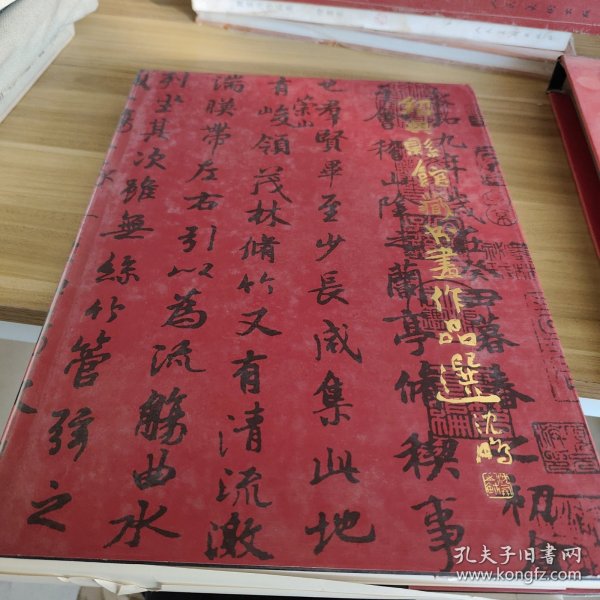 紹興縣館藏书畫作品選
沈鵬
永和九年歲在癸丑暮春之初會
于會稽山陰之蘭亭脩稧事
也羣賢畢至少長咸集此地
有崇山峻領茂林脩竹又有清流激
湍暎帶左右引以為流觴曲水
列坐其次雖無絲竹管弦之
孔夫子旧书网
www.kongfz.com